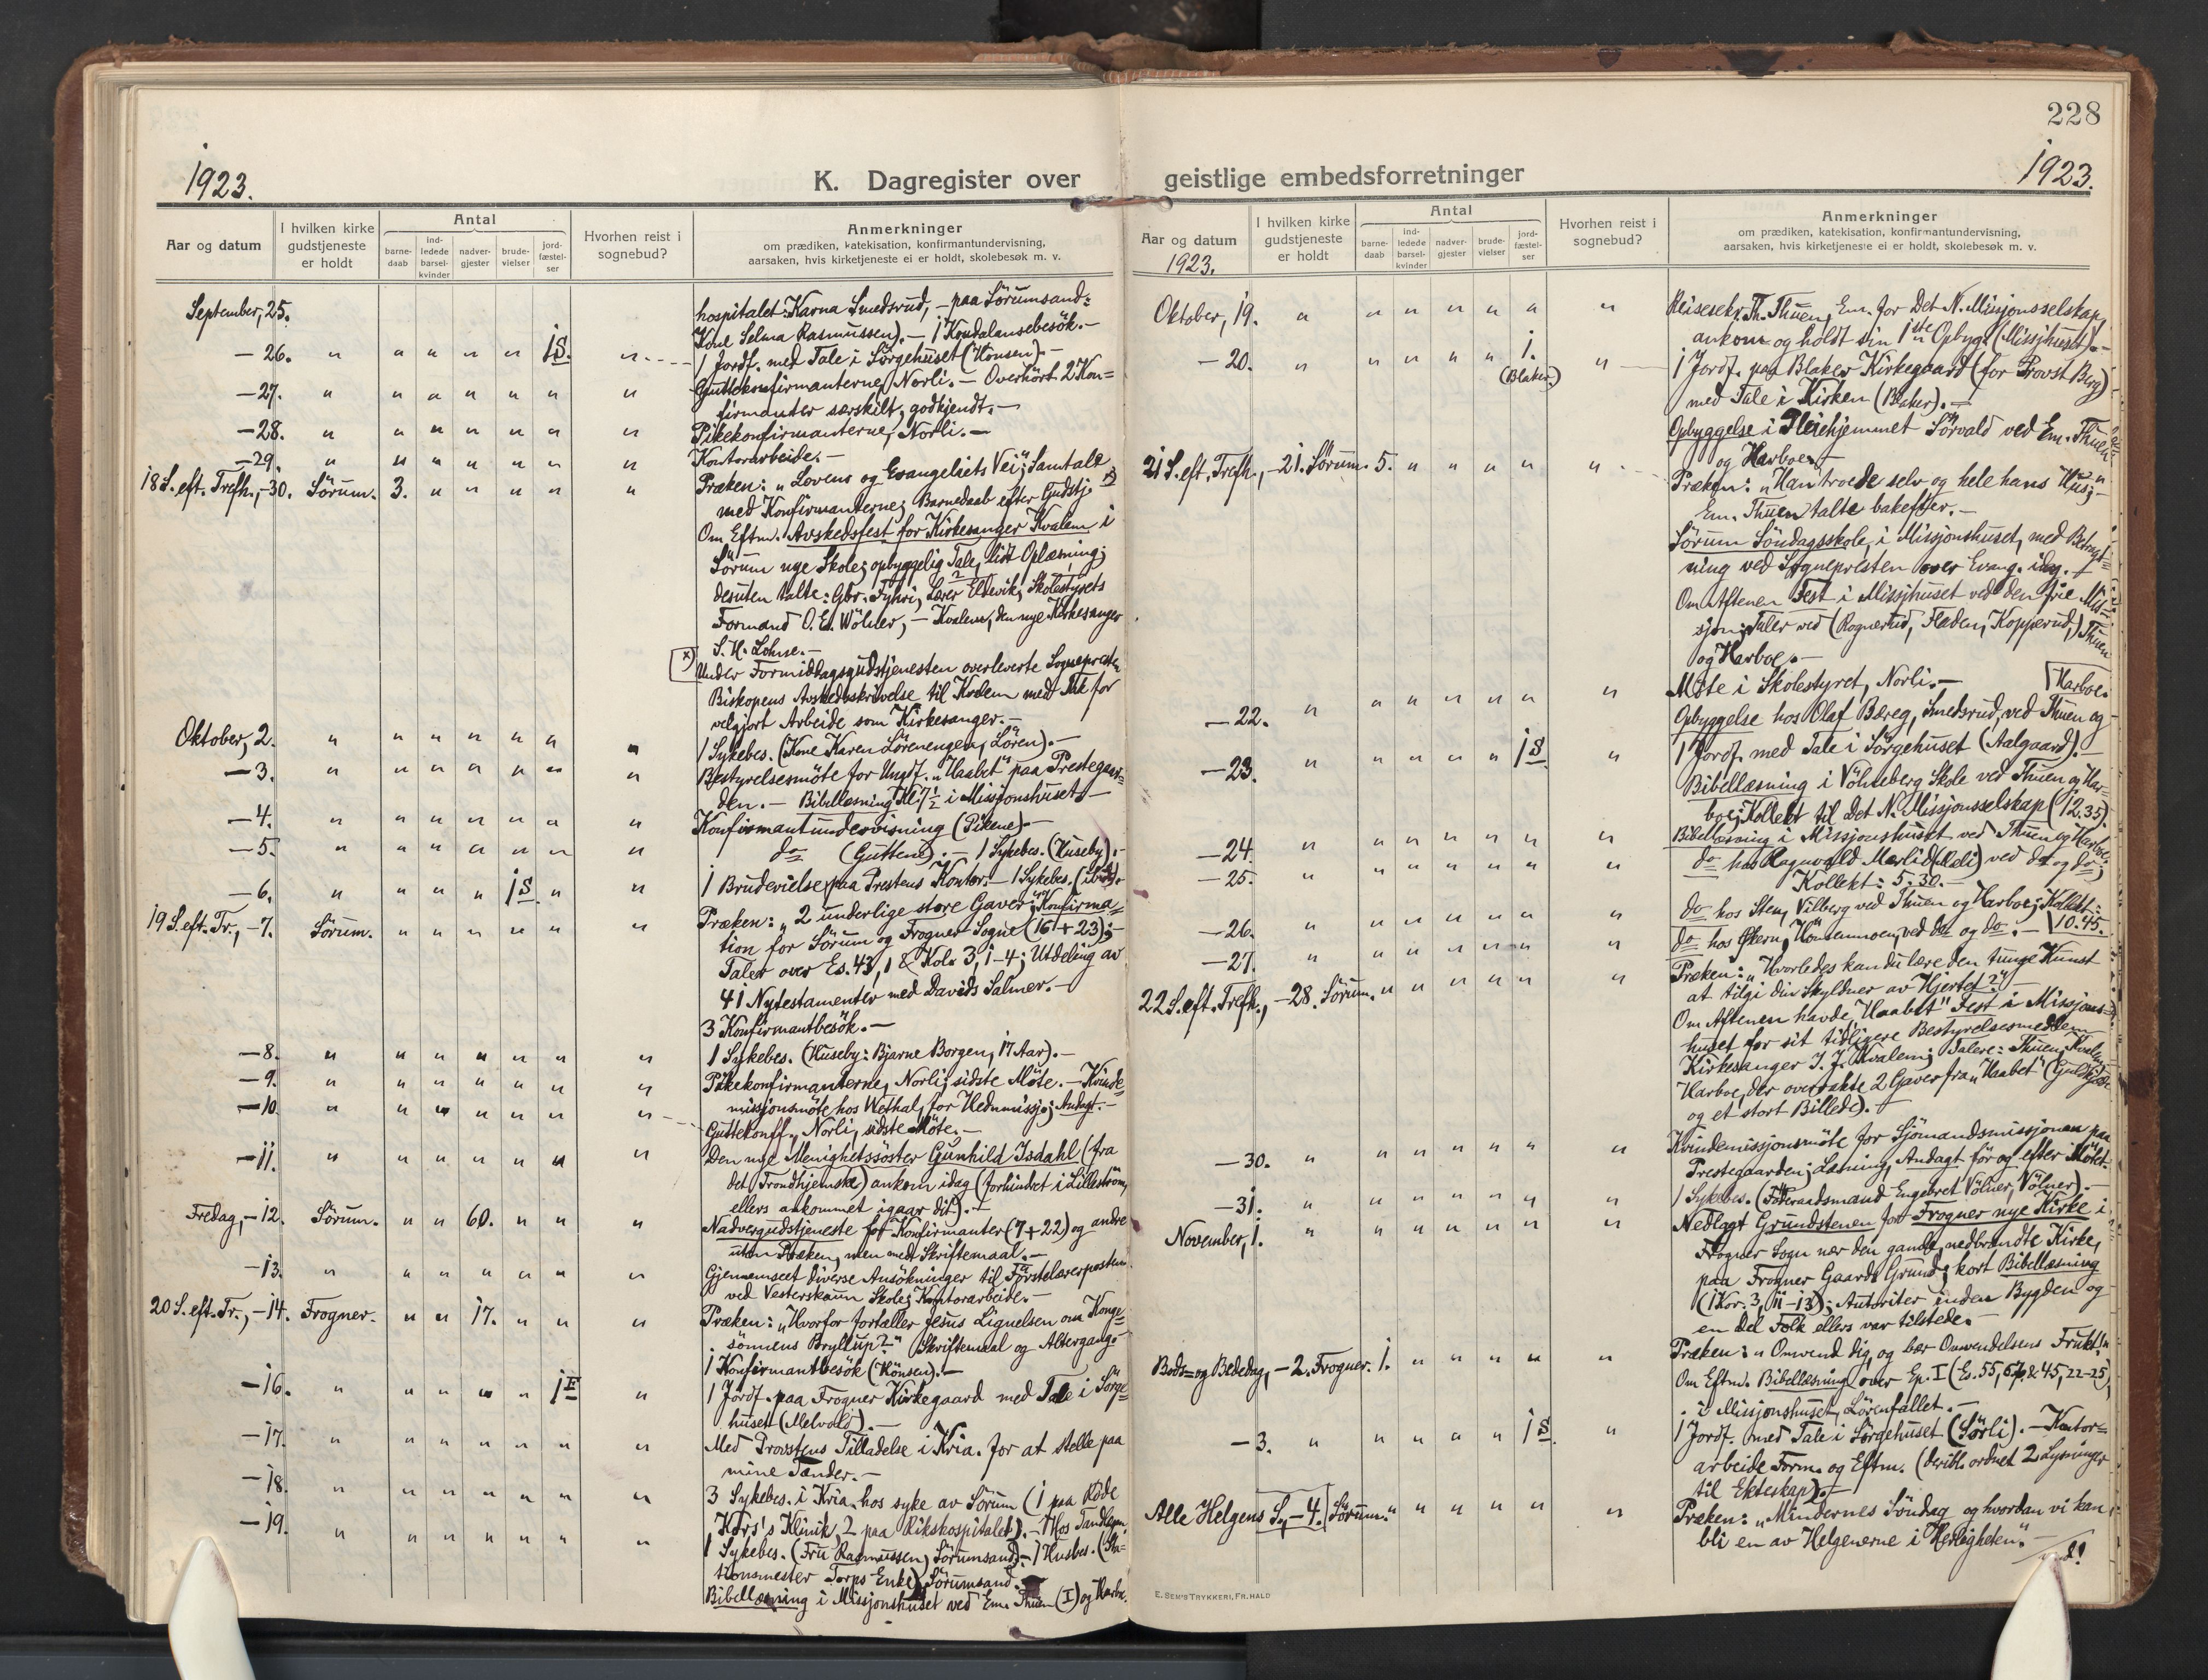 228
1923.
K. Dagregister over geistlige embedsforretninger
1923.
Aar og datum
I hvilken kirke gudstjeneste er holdt
Antal
barne-daab
ind-ledede barsel-kvinder
nadver-gjester
brude-vielser
jord-fæstel-ser
Hvorhen reist i sognebud?
Anmerkninger
om prædiken, katekisation, konfirmantundervisning,
aarsaken, hvis kirketjeneste ei er holdt, skolebesøk m. v.
September, 25. hospitalet: Karna Smedsrud, - paa Sörumsand:
Kone Selma Rasmussen). - 1 Kondolansebesök. -
- 26. " " " " " 1 S. " 1 Jordf. med Tale i Sörgehuset (Hönsen). -
- 27. " " " " " " " Guttekonfirmanterne, Norli. - Overhört 2 Kon=
firmanter særskilt, godkjendt. -
- 28. " " " " " " " Pikekonfirmanterne, Norli. -
- 29. " " " " " " " Kontorarbeide. -
18 S. eft. Trefh., - 30. Sörum. 3. " " " " " Præken: „Lovens og Evangeliets Vei"; Samtale
med Konfirmanterne; Barnedaab efter Gudstj. x)
Om Eftm. Avskedsfest for Kirkesanger Kvalem i
Sörum nye Skole; opbyggelig Tale, litt Oplæsning;
desuten talte: Gbr. Fyhri, Lærer Eldevik, Skolestyrets
Formand O. E. Wölner, - Kvalem, den nye Kirkesanger
S. H. Lohne. -
x) Under Formiddagsgudstjenesten overleverte Sognepresten
Biskopens Avskedsskrivelse til Kvalem med Tak for
velgjort Arbeide som Kirkesanger. -
Oktober, 2. " " " " " " " 1 Sykebes. (Kone Karen Lörenengen, Lören). -
- 3. " " " " " " " Bestyrelsesmöte for Ungdf. „Haabet" paa Prestegaar=
den. - Bibellæsning Kl. 7½ i Missjonshuset. -
- 4. " " " " " " " Konfirmantundervisning (Pikene). -
- 5. " " " " " " " do (Guttene). - 1 Sykebes. (Huseby). -
- 6. " " " " 1 S. " " 1 Brudevielse paa Prestens Kontor. - 1 Sykebes. (ibid).
19 S. eft. Tr., - 7. Sörum. " " " " " " Præken: „2 underlige store Gaver"; Konfirma=
tion for Sörum og Frogner Sogne (16 + 23); -
Taler over Es. 43, 1 & Kol. 3, 1-4; Utdeling av
41 Nytestamenter med Davids Salmer. -
3 Konfirmantbesök. -
- 8. " " " " " " " 1 Sykebes. (Huseby: Bjarne Borgen, 17 Aar). -
- 9. " " " " " " " Pikekonfirmanterne, Norli; sidste Möte. - Kvinde=
missjonsmöte hos Wethal, for Hednmissjo; Andagt. -
- 10. " " " " " " " Guttekonff., Norli, sidste Möte. -
- 11. " " " " " " " Den nye Menighetssöster Gunhild Isdahl (fra
det Trondhjemske) ankom idag (forhindret i Lilleström,
ellers ankommet igaar dit). -
Fredag, - 12. Sörum. " " 60. " " " Nadvergudstjeneste for Konfirmanter (7 + 22) og andre
uten Præken, men med Skriftemaal. -
- 13. " " " " " " " Gjennemseet diverse Ansökninger til Förstelærerposten
ved Vesterskaun Skole; Kontorarbeide. -
20 S. eft. Tr., - 14. Frogner. " " 17. " " " Præken: „Hvorfor fortæller Jesus Lignelsen om Konge=
sönnens Bryllup?" Skriftemaal og Altergang. -
1 Konfirmantbesök (Hönsen). -
- 16. " " " " " 1 F " 1 Jordf. paa Frogner Kirkegaard med Tale i Sörge=
huset (Melvold). -
- 17. " " " " " " " Med Provstens Tilladelse i Kria. for at stelle paa
mine Tænder. -
- 18. " " " " " " " 3 Sykebes. i Kria. hos syke av Sörum (1 paa Röde
Kors's Klinik, 2 paa Rikshospitalet). - Hos Tandlægen.
- 19. " " " " " " " 1 Sykebes. (Fru Rasmussen, Sörumsand) - 1 Husbes. (Sta=
tionsmester Torps Enke), Sörumsand.
Bibellæsning i Missjonshuset ved Em. Thuen (I) og Harboe.
Aar og datum
1923.
I hvilken kirke gudstjeneste er holdt
Antal
barne-daab
ind-ledede barsel-kvinder
nadver-gjester
brude-vielser
jord-fæstel-ser
Hvorhen reist i sognebud?
Anmerkninger
om prædiken, katekisation, konfirmantundervisning,
aarsaken, hvis kirketjeneste ei er holdt, skolebesøk m. v.
Oktober, 19. " " " " " " " Reisesekr. Th. Thuen, Em. for Det N. Missjonsselskap,
ankom og holdt sin 1ste Opbygg. (Missjhuset). -
- 20. " " " " " 1. (Blaker) " 1 Jordf. paa Blaker Kirkegaard (for Provst Berg)
med Tale i Kirken (Blaker). -
Opbyggelse i Pleiehjemmet Sörvald ved Em. Thuen
og Harboe. -
21 S. eft. Trefh., - 21. Sörum. 5. " " " " " Præken: „Han troede selv og hele hans Hus"; -
Em. Thuen talte bakefter. -
Sörum Söndagsskole, i Missjonshuset, med Betragt=
ning ved Sognepresten over Evang. idag. -
Om Aftenen Fest i Missjhuset ved den frie Mis=
sjon; Taler ved (Rognerud, Fladen, Kopperud,) Thuen
og Harboe. -
- 22. " " " " " " " Möte i Skolestyret, Norli. -
Opbyggelse hos Olaf Bæreg, Smedsrud, ved Thuen og Harboe.
- 23. " " " " " 1 S. " 1 Jordf. med Tale i Sörgehuset (Aalgaard). -
Bibellæsning i Völneberg Skole ved Thuen og Har=
boe; Kollekt til Det N. Missjonsselskap (12.35).
- 24. " " " " " " " Bibellæsning i Missjonshuset ved Thuen og Harboe.
- 25. " " " " " " " do hos Ragnvald Mærli (Mæli) ved do og do;
Kollekt: 5.30. -
- 26. " " " " " " " do hos Sten, Vilberg ved Thuen og Harboe; Kollekt: 10.45.
- 27. " " " " " " " do hos Økern, Hönsenmoen, ved do og do. -
22 S. eft. Trefh., - 28. Sörum. " " " " " " Præken: „Hvorledes kan du lære den tunge Kunst
at tilgi din Skyldner av Hjertet?" -
Om Aftenen havde „Haabet" Fest i Missjons=
huset for sit tidligere Bestyrelsesmedlem
Kirkesanger J. J. Kvalem; Talere: Thuen, Kvalem,
Harboe, der overrakte 2 Gaver fra „Haabet" (Guldkjæde
og et stort Billede). -
- 30. " " " " " " " Kvindemissjonsmöte for Sjömandsmissjonen paa
Prestegaarden; Læsning, Andagt för og efter Mötet.
- 31. " " " " " " " 1 Sykebes. (Föderaadsmand Engebret Völner, Völner). -
November, 1. " " " " " " " Nedlagt Grundstenen for Frogner nye Kirke i
Frogner Sogn nær den gamle, nedbrændte Kirke,
paa Frogner Gaards Grund; kort Bibellæsning
(1 Kor. 3, 11-13); Autoriter inden Bygden og
en Del Folk ellers var tilstede. -
Bods- og Bededag, - 2. Frogner. 1. " " " " " Præken: „Omvend dig, og bær Omvendelsens Frukt!"
Om Eftm. Bibellæsning over Ep. I (Es. 55, 6-7 & 45, 22-25),
i Missjonshuset, Lörenfallet. -
- 3. " " " " " 1 S. " 1 Jordf. med Tale i Sörgehuset (Sörli). - Kontor=
arbeide Form. og Eftm. (deribl. ordnet 2 Lysninger
til Ekteskap). -
Alle Helgens S., - 4. Sörum. " " " " " " Præken: „Mindernes Söndag og hvordan vi kan
bli en av Helgenerne i Herligheten." -
vend!
E. SEM'S TRYKKERI, FR. HALD